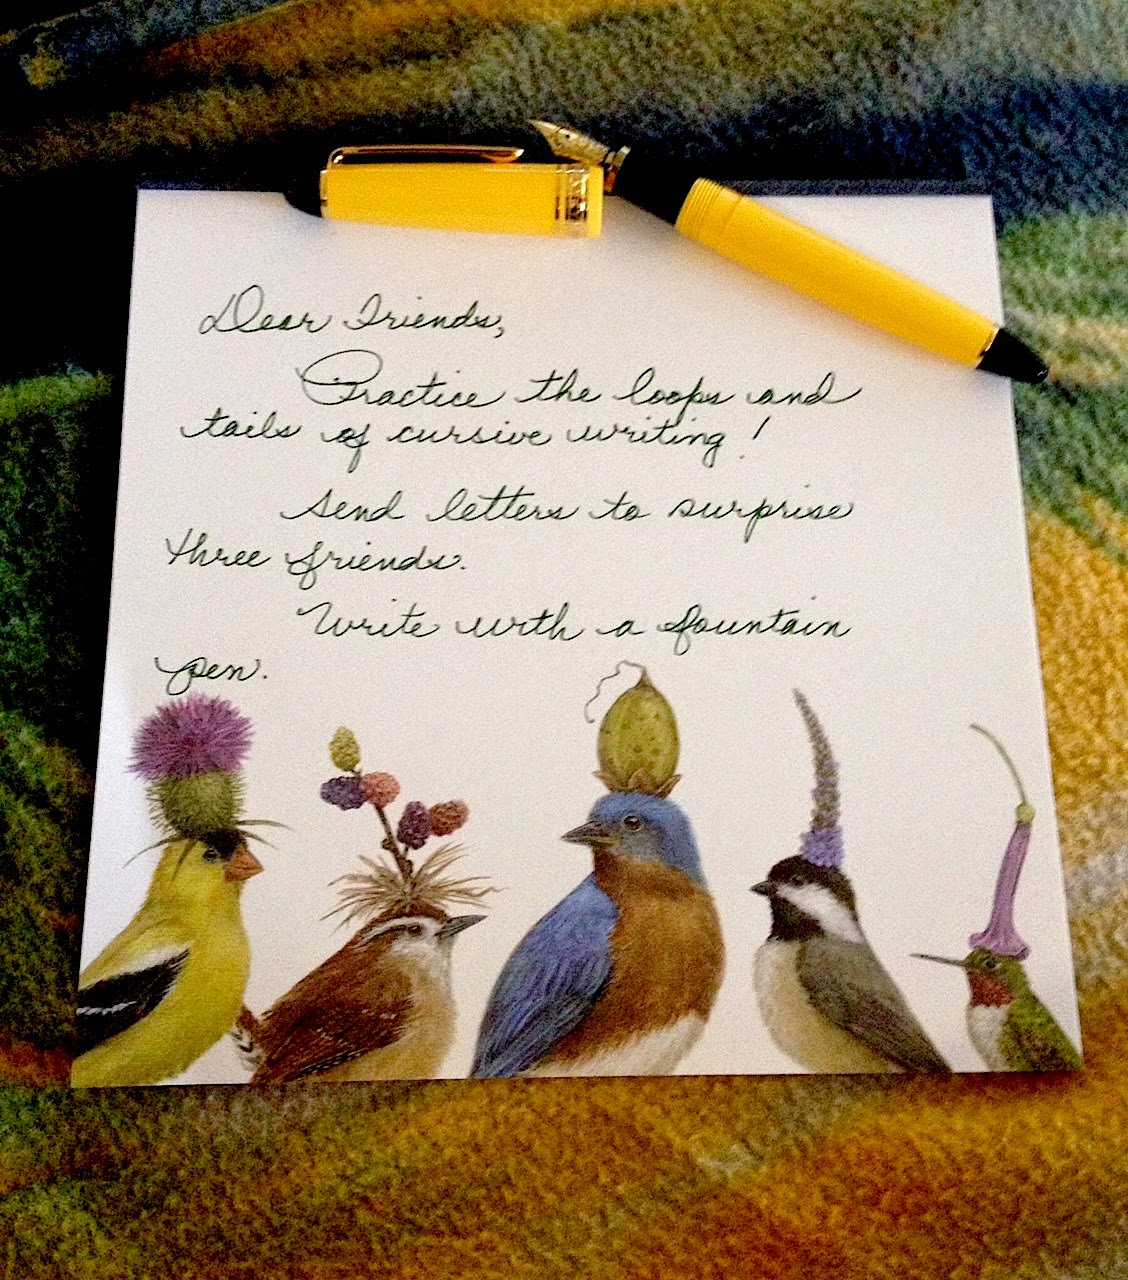 Dear Friends,
Practice the loops and
tails of cursive writing!
Send letters to surprise
three friends.
Write with a fountain
pen.